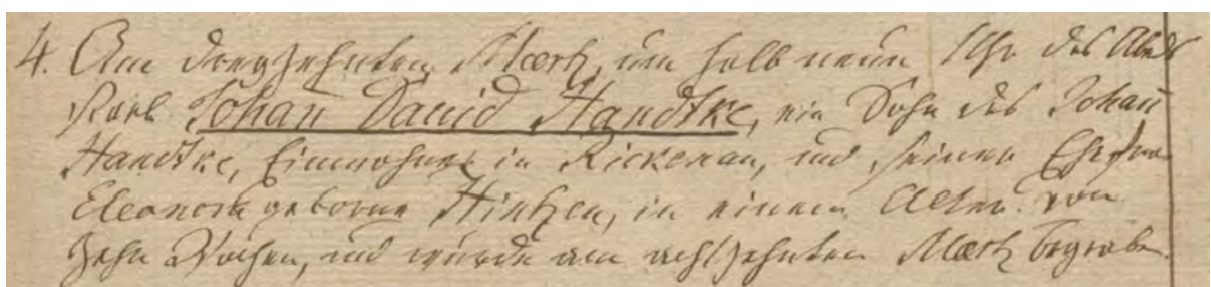 4. Am dreyzehnten Maertz, um halb neun Uhr des Abends
starb Johan David Handtke, ein Sohn des Johan
Handtke, Einwohner in Rickenau, und seiner Ehefrau
Eleonora geborne Hintzen, in einem Alter von
Zehn Wochen, und wurde am achtzehnten Maertz begraben.